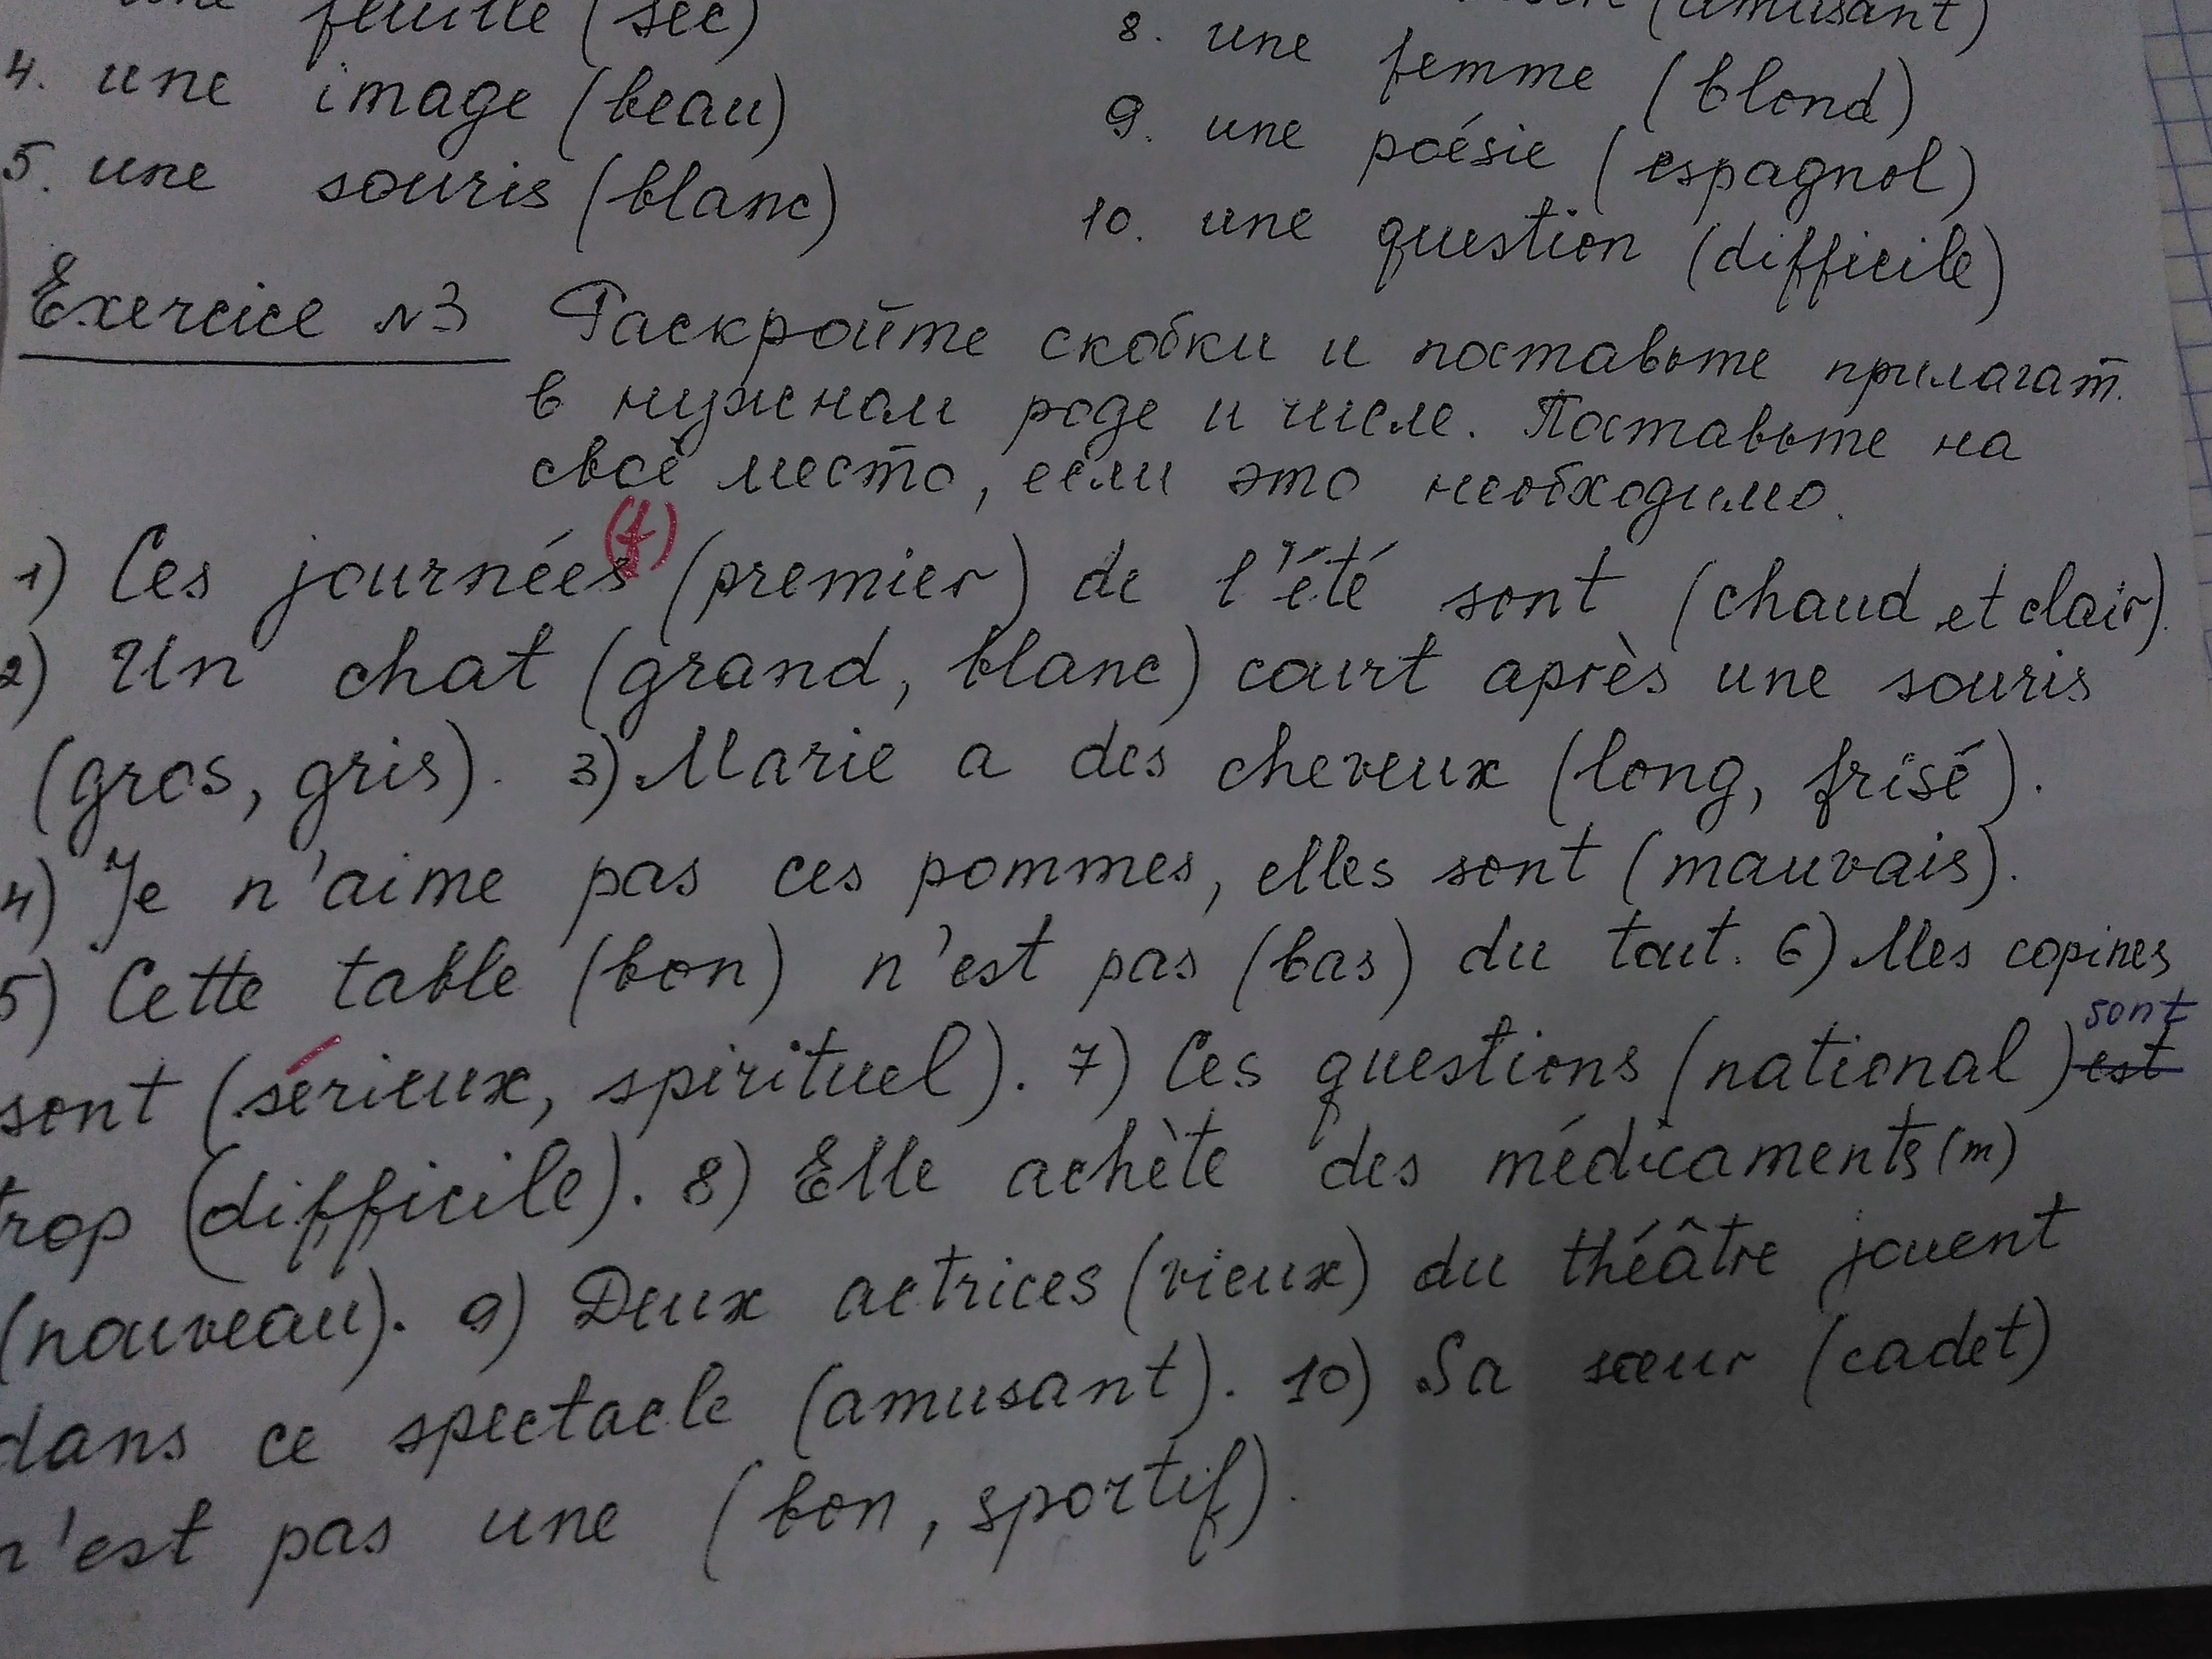 feuille (sec)
4. une image (beau)
5. une souris (blanc)
(amusant)
8. une femme (blond)
9. une poésie (espagnol)
10. une question (difficile)
Exercice N3 Раскройте скобки и поставьте прилагат.
в нужном роде и числе. Поставьте на
своё место, если это необходимо.
1) Ces journées (f) (premier) de l'été sont (chaud et clair).
2) Un chat (grand, blanc) court après une souris
(gros, gris). 3) Marie a des cheveux (long, frisé).
4) Je n'aime pas ces pommes, elles sont (mauvais).
5) Cette table (bon) n'est pas (bas) du tout. 6) Mes copines
sont (sérieux, spirituel). 7) Ces questions (national) est sont
trop (difficile). 8) Elle achète des médicaments (m)
(nouveau). 9) Deux actrices (vieux) du théâtre jouent
dans ce spectacle (amusant). 10) Sa sœur (cadet)
n'est pas une (bon, sportif).